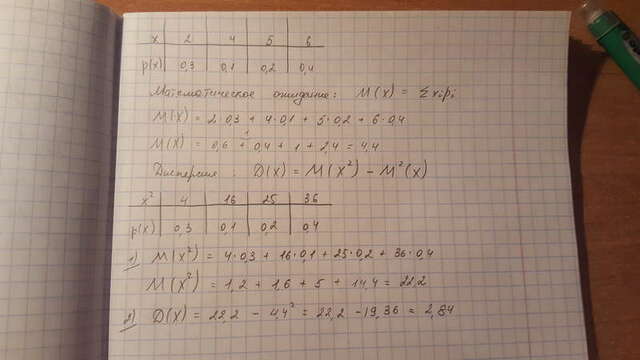 x | 2 | 4 | 5 | 6
p(x) | 0,3 | 0,1 | 0,2 | 0,4
Математическое ожидание: M(X) = Σxᵢpᵢ
M(X) = 2·0,3 + 4·0,1 + 5·0,2 + 6·0,4
M(X) = 0,6 + 0,4 + 1 + 2,4 = 4,4
Дисперсия: D(X) = M(X²) - M²(X)
x² | 4 | 16 | 25 | 36
p(x) | 0,3 | 0,1 | 0,2 | 0,4
1) M(X²) = 4·0,3 + 16·0,1 + 25·0,2 + 36·0,4
M(X²) = 1,2 + 1,6 + 5 + 14,4 = 22,2
2) D(X) = 22,2 - 4,4² = 22,2 - 19,36 = 2,84